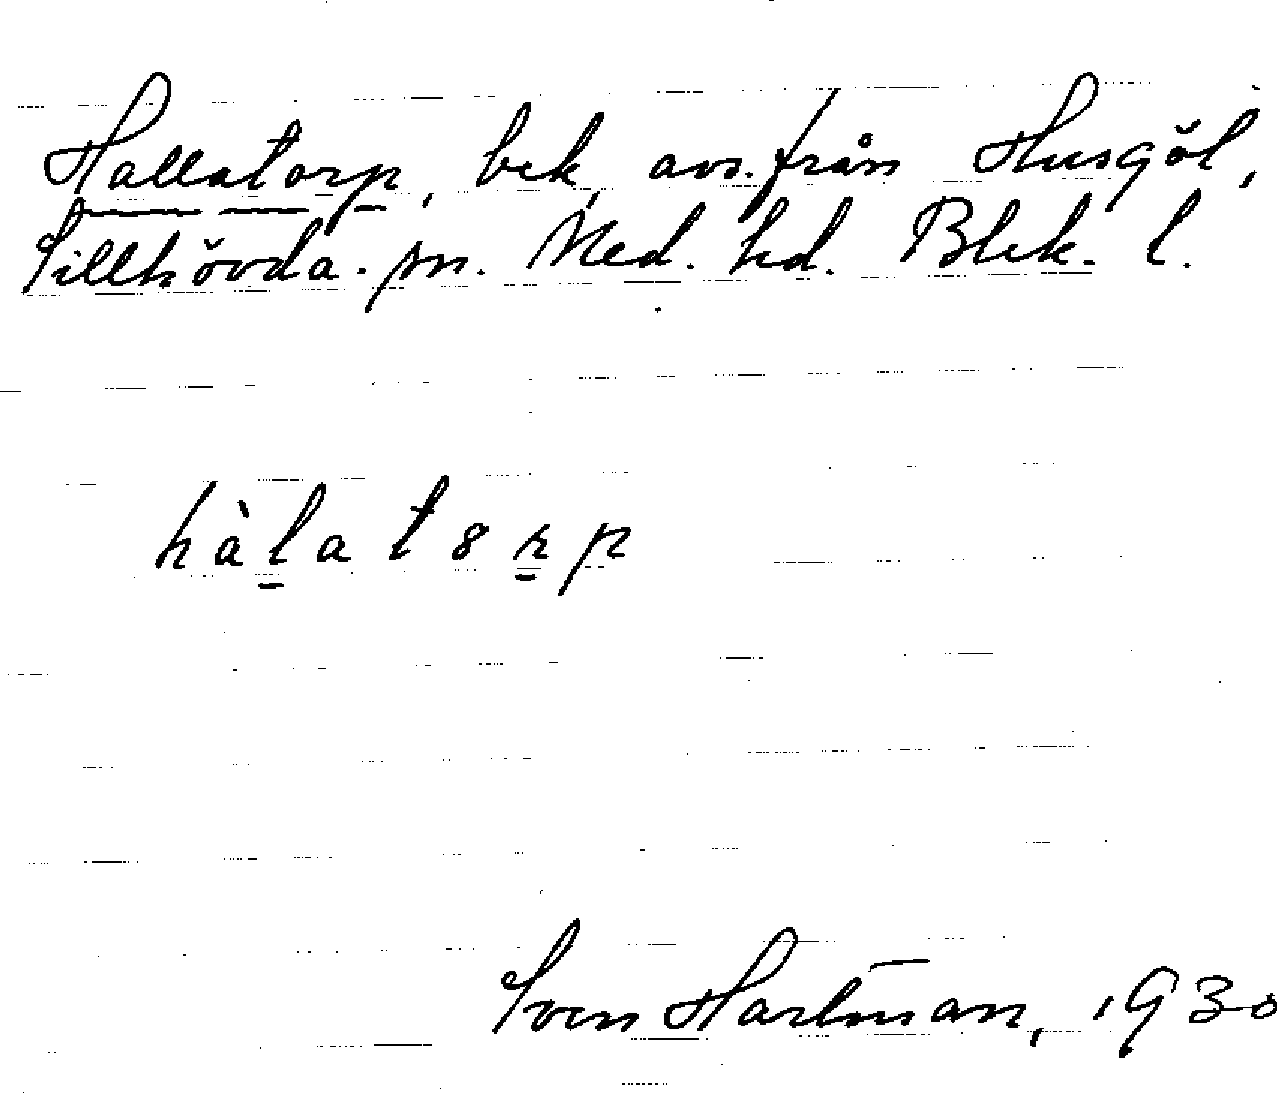 Hallatorp, bek. avs. från Husgöl,
Tillhövda. sn. Med. hd. Blek. l.
hàlat8rp
Sven Hartman, 1930